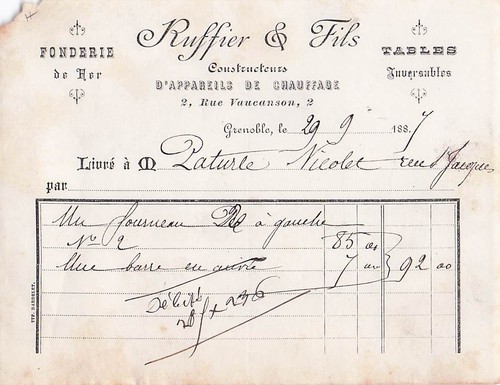 Ruffier & Fils
FONDERIE
de Fer
TABLES
Inversables
Constructeurs
D'APPAREILS DE CHAUFFAGE
2, Rue Vaucanson, 2
Grenoble, le 29 9 1887
Livré à M Paturle Nicolet rue St Jacques
par
Un fourneau à gauche
N° 2 85 00
Une barre en cuivre 7 00 92 00
Débité